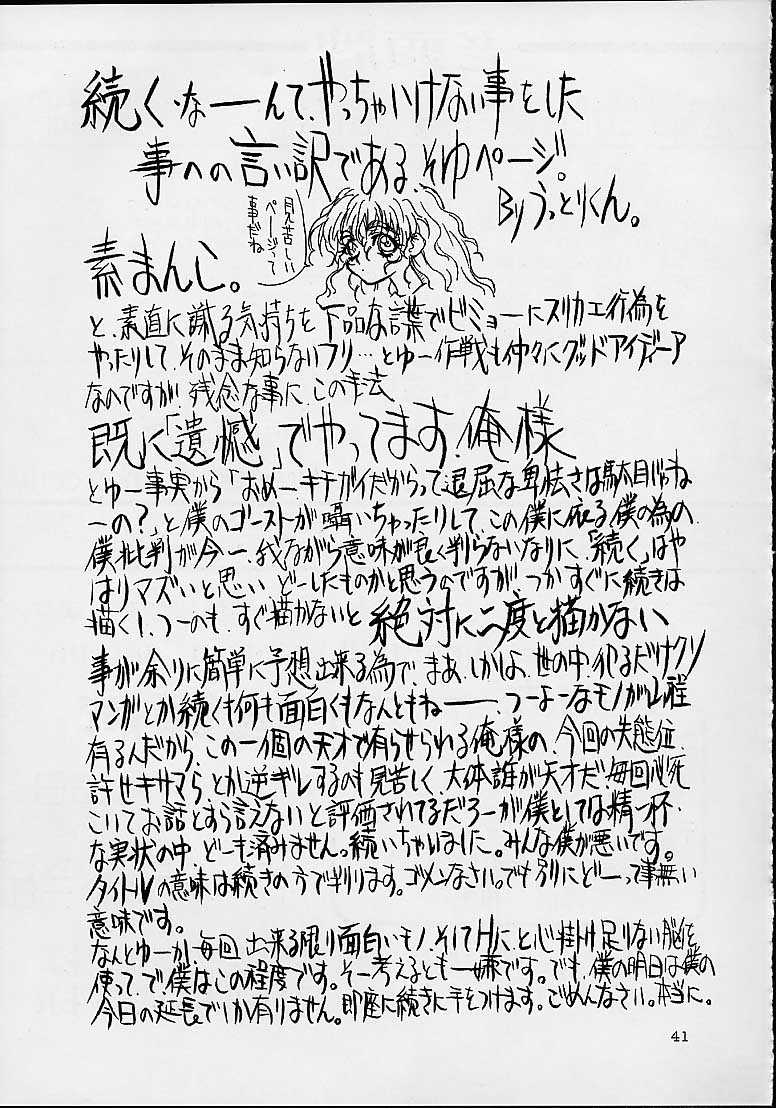 続く、なーんて、やっちゃいけない事をした
事への言い訳である、そゆページ。
Byうっとりくん。
見苦しい
ページって
事だね
素まんじ。
と、素直に謝る気持ちを下品な言葉でビミョーにスリカエ行為を
やったりして、そのまま知らないフリ…とゆー作戦も仲々にグッドアイディーア
なのですが、残念な事に、この手法
既に「遺憾」でやってます、俺様
とゆー事実から「おめーキチガイだからって退屈な卑怯さは駄目じゃね
ーの?」と僕のゴーストが囁いちゃったりして、この僕に依る僕の為の、
僕批判が今一、我ながら意味が良く判らないなりに、「続く」はや
はりマズいと思い、どーしたものかと思うのですが、つか、すぐに続きは
描く!、つーのも、すぐ描かないと 絶対に二度と描かない
事が余りに簡単に予想出来る為で、まあ、しかしよ、世の中、犯るだけクソ
マンガとか続くも何も面白くもなんともねーーー、つーよーなモノが山程
有るんだから、この一個の天才で有らせられる俺様の、今回の失態位、
許せキサマら、とか逆ギレするのも見苦しく、大体誰が天才だ、毎回必死
こいてお話とすら言えないと評価されてるだろーが僕としては精一杯・
な実状の中、どーも済みません。続いちゃいました。みんな僕が悪いです。
タイトルの意味は続きの方で判ります。ゴメンなさい。でも別にどーって事無い
意味です。
なんとゆーか、毎回、出来る限り面白いモノ、そしてHに、と心掛け足りない脳を
使って、で、僕はこの程度です。そー考えるととも一嫌です。でも、僕の明日は僕の
今日の延長でしか有りません。即座に続きに手をつけます。ごめんなさい。本当に。
41